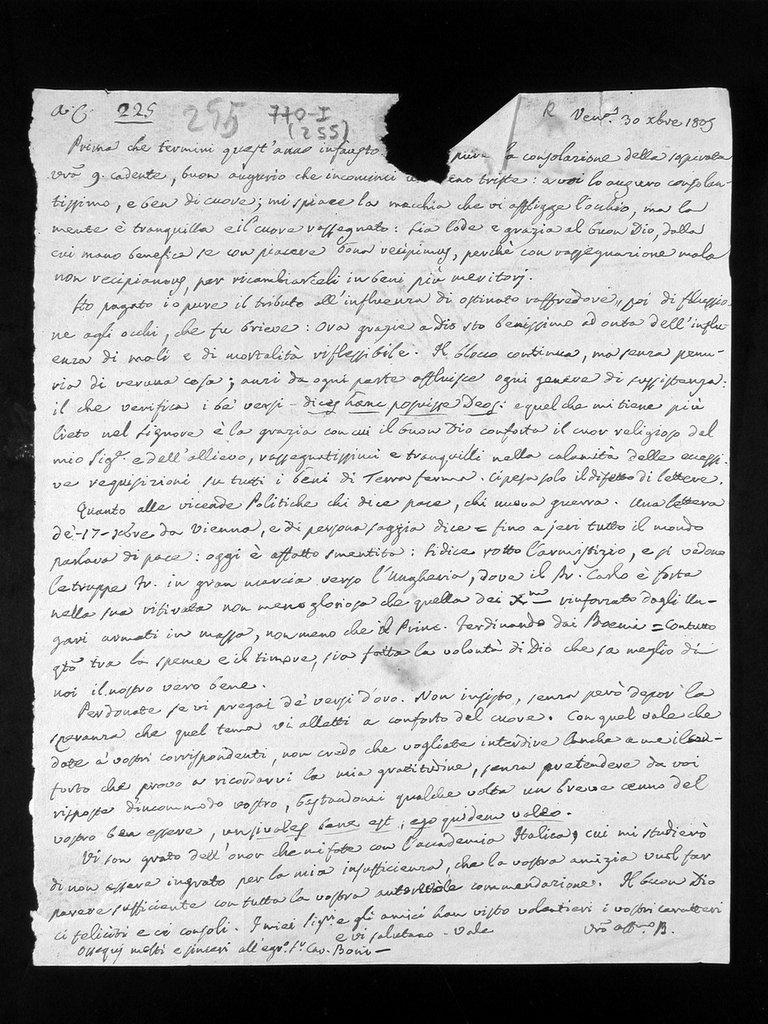 A. C. 225 255 770-I R Ven.ª 30 xbre 1805
(255)
Prima che termini quest'anno infausto pure la consolazione della sospirata
vrã 9. cadente, buon augurio che incominci meno triste: a voi lo auguro consolan-
tissimo, e ben di cuore; mi spiace la macchia che vi affligge l'occhio, ma la
mente è tranquilla e il cuore rassegnato: sia lode e grazia al buon Dio, dalla
cui mano benefica se con piacere bona recipimus, perchè con rassegnazione mala
non recipiamus, per ricambiarceli in beni più meritorj.
Ho pagato io pure il tributo all'influenza di ostinato raffredore, poi di flussio-
ne agli occhi, che fu brieve. Ora grazie a Dio sto benissimo ad onta dell'influ-
enza di mali e di mortalità riflessibile. Il blocco continua, ma senza penu-
ria di veruna cosa; anzi da ogni parte affluisce ogni genere di sussistenza:
il che verifica i bè versi - dices hæc posuisse Deos: e quel che mi tiene più
lieto nel Signore è la grazia con cui il buon Dio conforta il cuor religioso del
mio Sigr. e dell'allievo, rassegnatissimi e tranquilli nella calamità delle eccessi-
ve requisizioni su tutti i beni di Terra ferma. Ci pesa solo il difetto di lettere.
Quanto alle vicende Politiche chi dice pace, chi nuova guerra. Una lettera
de' -17- xbre da Vienna, e di persona saggia dice = fino a jeri tutto il mondo
parlava di pace: oggi è affatto smentita: si dice rotto l'armistizio, e si vedono
le truppe Fr. in gran marcia verso l'Ungheria, dove il Pr. Carlo è forte
nella sua ritirata non meno gloriosa che quella dei Xm. rinforzato dagli Un-
gari armati in massa, non meno che il Princ. Ferdinando dai Boemi = Contutto
qto tra la speme e il timore, sia fatta la volontà di Dio che sa meglio di
noi il nostro vero bene.
Perdonate se vi pregai de' versi d'oro. Non insisto, senza però depor la
speranza che quel tema vi alletti a conforto del cuore. Con quel vale che
date a' vostri corrispondenti, non credo che vogliate interdire anche a me il con-
forto che provo a ricordarvi la mia gratitudine, senza pretendere da voi
risposte d'incommodo vostro, bastandomi qualche volta un breve cenno del
vostro ben essere, un si vales bene est, ego quidem valeo.
Vi son grato dell'onor che mi fate con l'accademia Italica, cui mi studierò
di non essere ingrato per la mia insufficienza, che la vostra amizia vuol far
parere sufficiente con tutta la vostra autorevole commendazione. Il buon Dio
ci feliciti e ci consoli. I miei Sigri e gli amici han visto volentieri i vostri caratteri
e vi salutano - Vale vrõ affmo B.
Ossequj molti e sinceri all'egro Sr Cav. Boni -